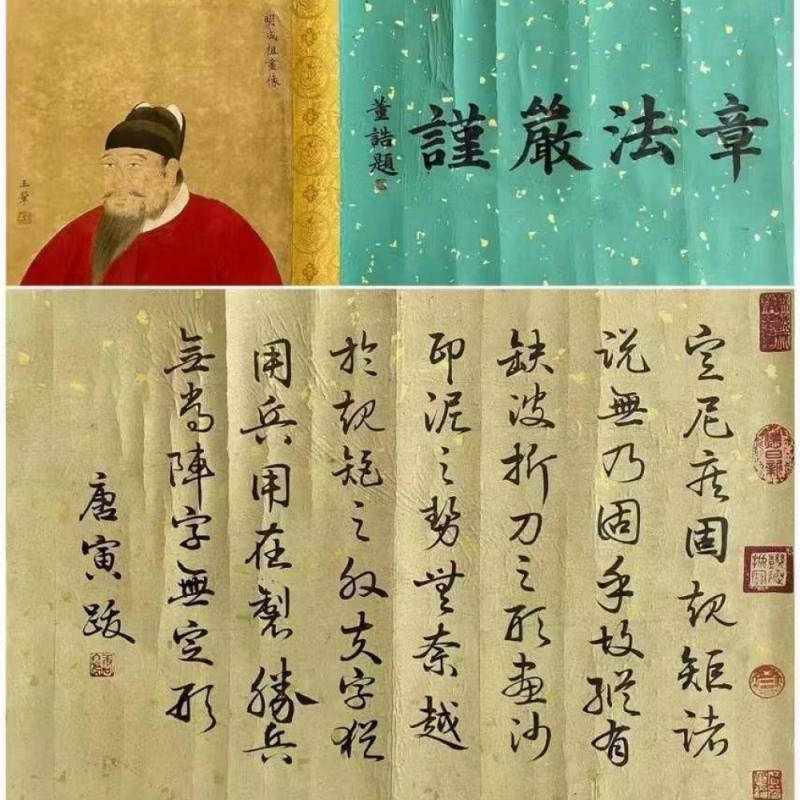 明成祖畫像
王肇
章法嚴謹
董誥題
定尼茲固規矩諸
説無乃固乎故縱有
缺波折刀之形畫沙
印泥之勢無奈越
於規矩之外夫字猶
用兵用在製勝兵
無常陣字無定形
唐寅跋